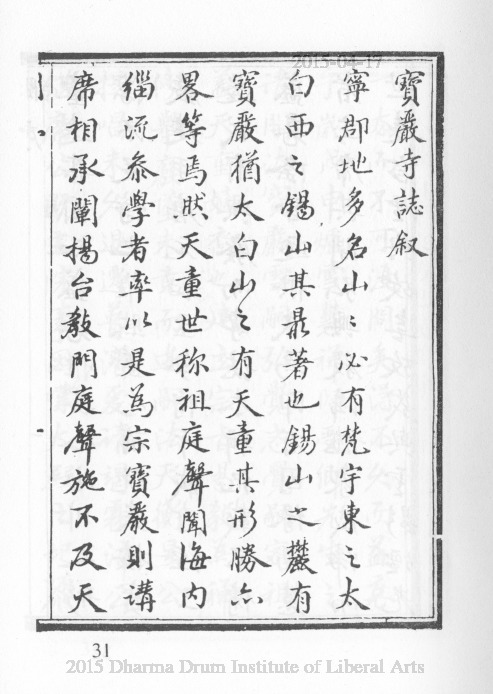 2015-04-17
寶嚴寺誌叙
寧郡地多名山〻必有梵宇東之太
白西之錫山其最著也錫山之麓有
寶嚴猶太白山之有天童其形勝六
畧等焉然天童世称祖庭聲聞海内
緇流叅學者率以是為宗寶嚴則講
席相承闡揚台教門庭聲施不及天
31
2015 Dharma Drum Institute of Liberal Arts